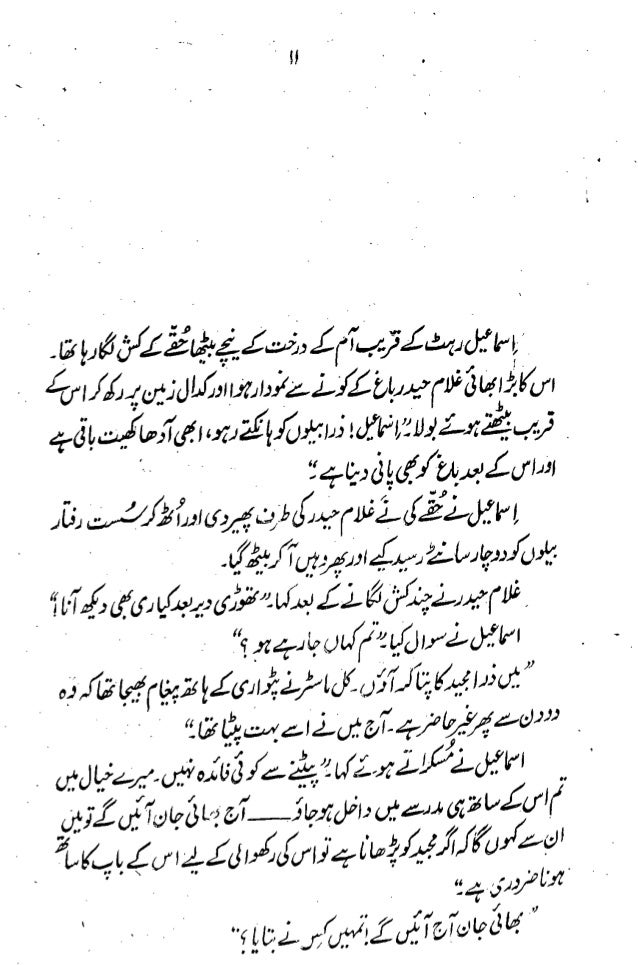 ۱۱
اِسماعیل رہٹ کے قریب آم کے درخت کے نیچے بیٹھا حُقّے کے کش لگا رہا تھا۔
اس کا بڑا بھائی غلام حیدر باغ کے کونے سے نمودار ہوا اور کدال زمین پر رکھ کر اس کے
قریب بیٹھتے ہوئے بولا۔ ”اسماعیل! ذرا بیلوں کو ہانکتے رہو، ابھی آدھا کھیت باقی ہے
اور اس کے بعد باغ کو بھی پانی دینا ہے۔“
اِسماعیل نے حُقّے کی نَے غلام حیدر کی طرف پھیر دی اور اُٹھ کر سُست رفتار
بیلوں کو دو چار سانٹے رسید کیے اور پھر وہیں آ کر بیٹھ گیا۔
غلام حیدر نے چند کش لگانے کے بعد کہا۔ ”تھوڑی دیر بعد کیاری بھی دیکھ آنا!“
اسماعیل نے سوال کیا۔ ”تم کہاں جا رہے ہو ؟“
”میں ذرا مجید کا پتا کر آؤں۔ کل ماسٹر نے پٹواری کے ہاتھ پیغام بھیجا تھا کہ وہ
دو دن سے پھر غیر حاضر ہے۔ آج میں نے اسے بہت پیٹا تھا۔“
اسماعیل نے مُسکراتے ہوئے کہا۔ ”پیٹنے سے کوئی فائدہ نہیں۔ میرے خیال میں
تم اس کے ساتھ ہی مدرسے میں داخل ہو جاؤ ــــــ آج بھائی جان آئیں گے تو میں
ان سے کہوں گا کہ اگر مجید کو پڑھانا ہے تو اس کی رکھوالی کے لیے اس کے باپ کا ساتھ
ہونا ضروری ہے۔“
”بھائی جان آج آئیں گے! تمہیں کِس نے بتایا ؟“